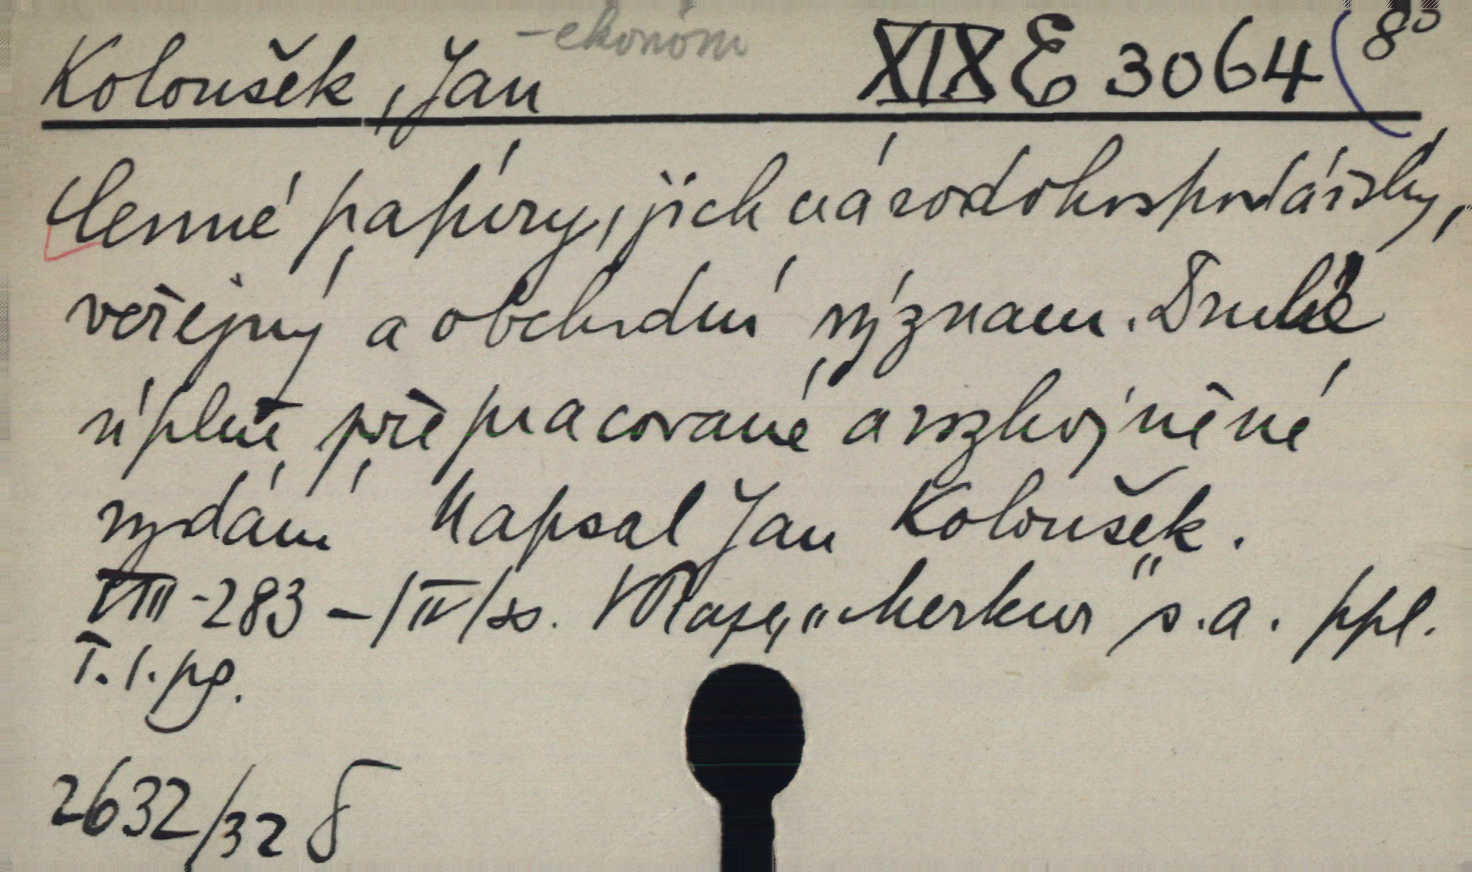 Koloušek, Jan -ekonom XIX E 3064 (8°
Cenné papíry, jich národohospodářský,
veřejný a obchodní význam. Druhé
úplně přepracované a rozhojněné
vydání Napsal Jan Koloušek.
VIII -283 -/IV/ss. V Praze, "Merkur" s.a. ppl.
T. 1. pg.
2632/32